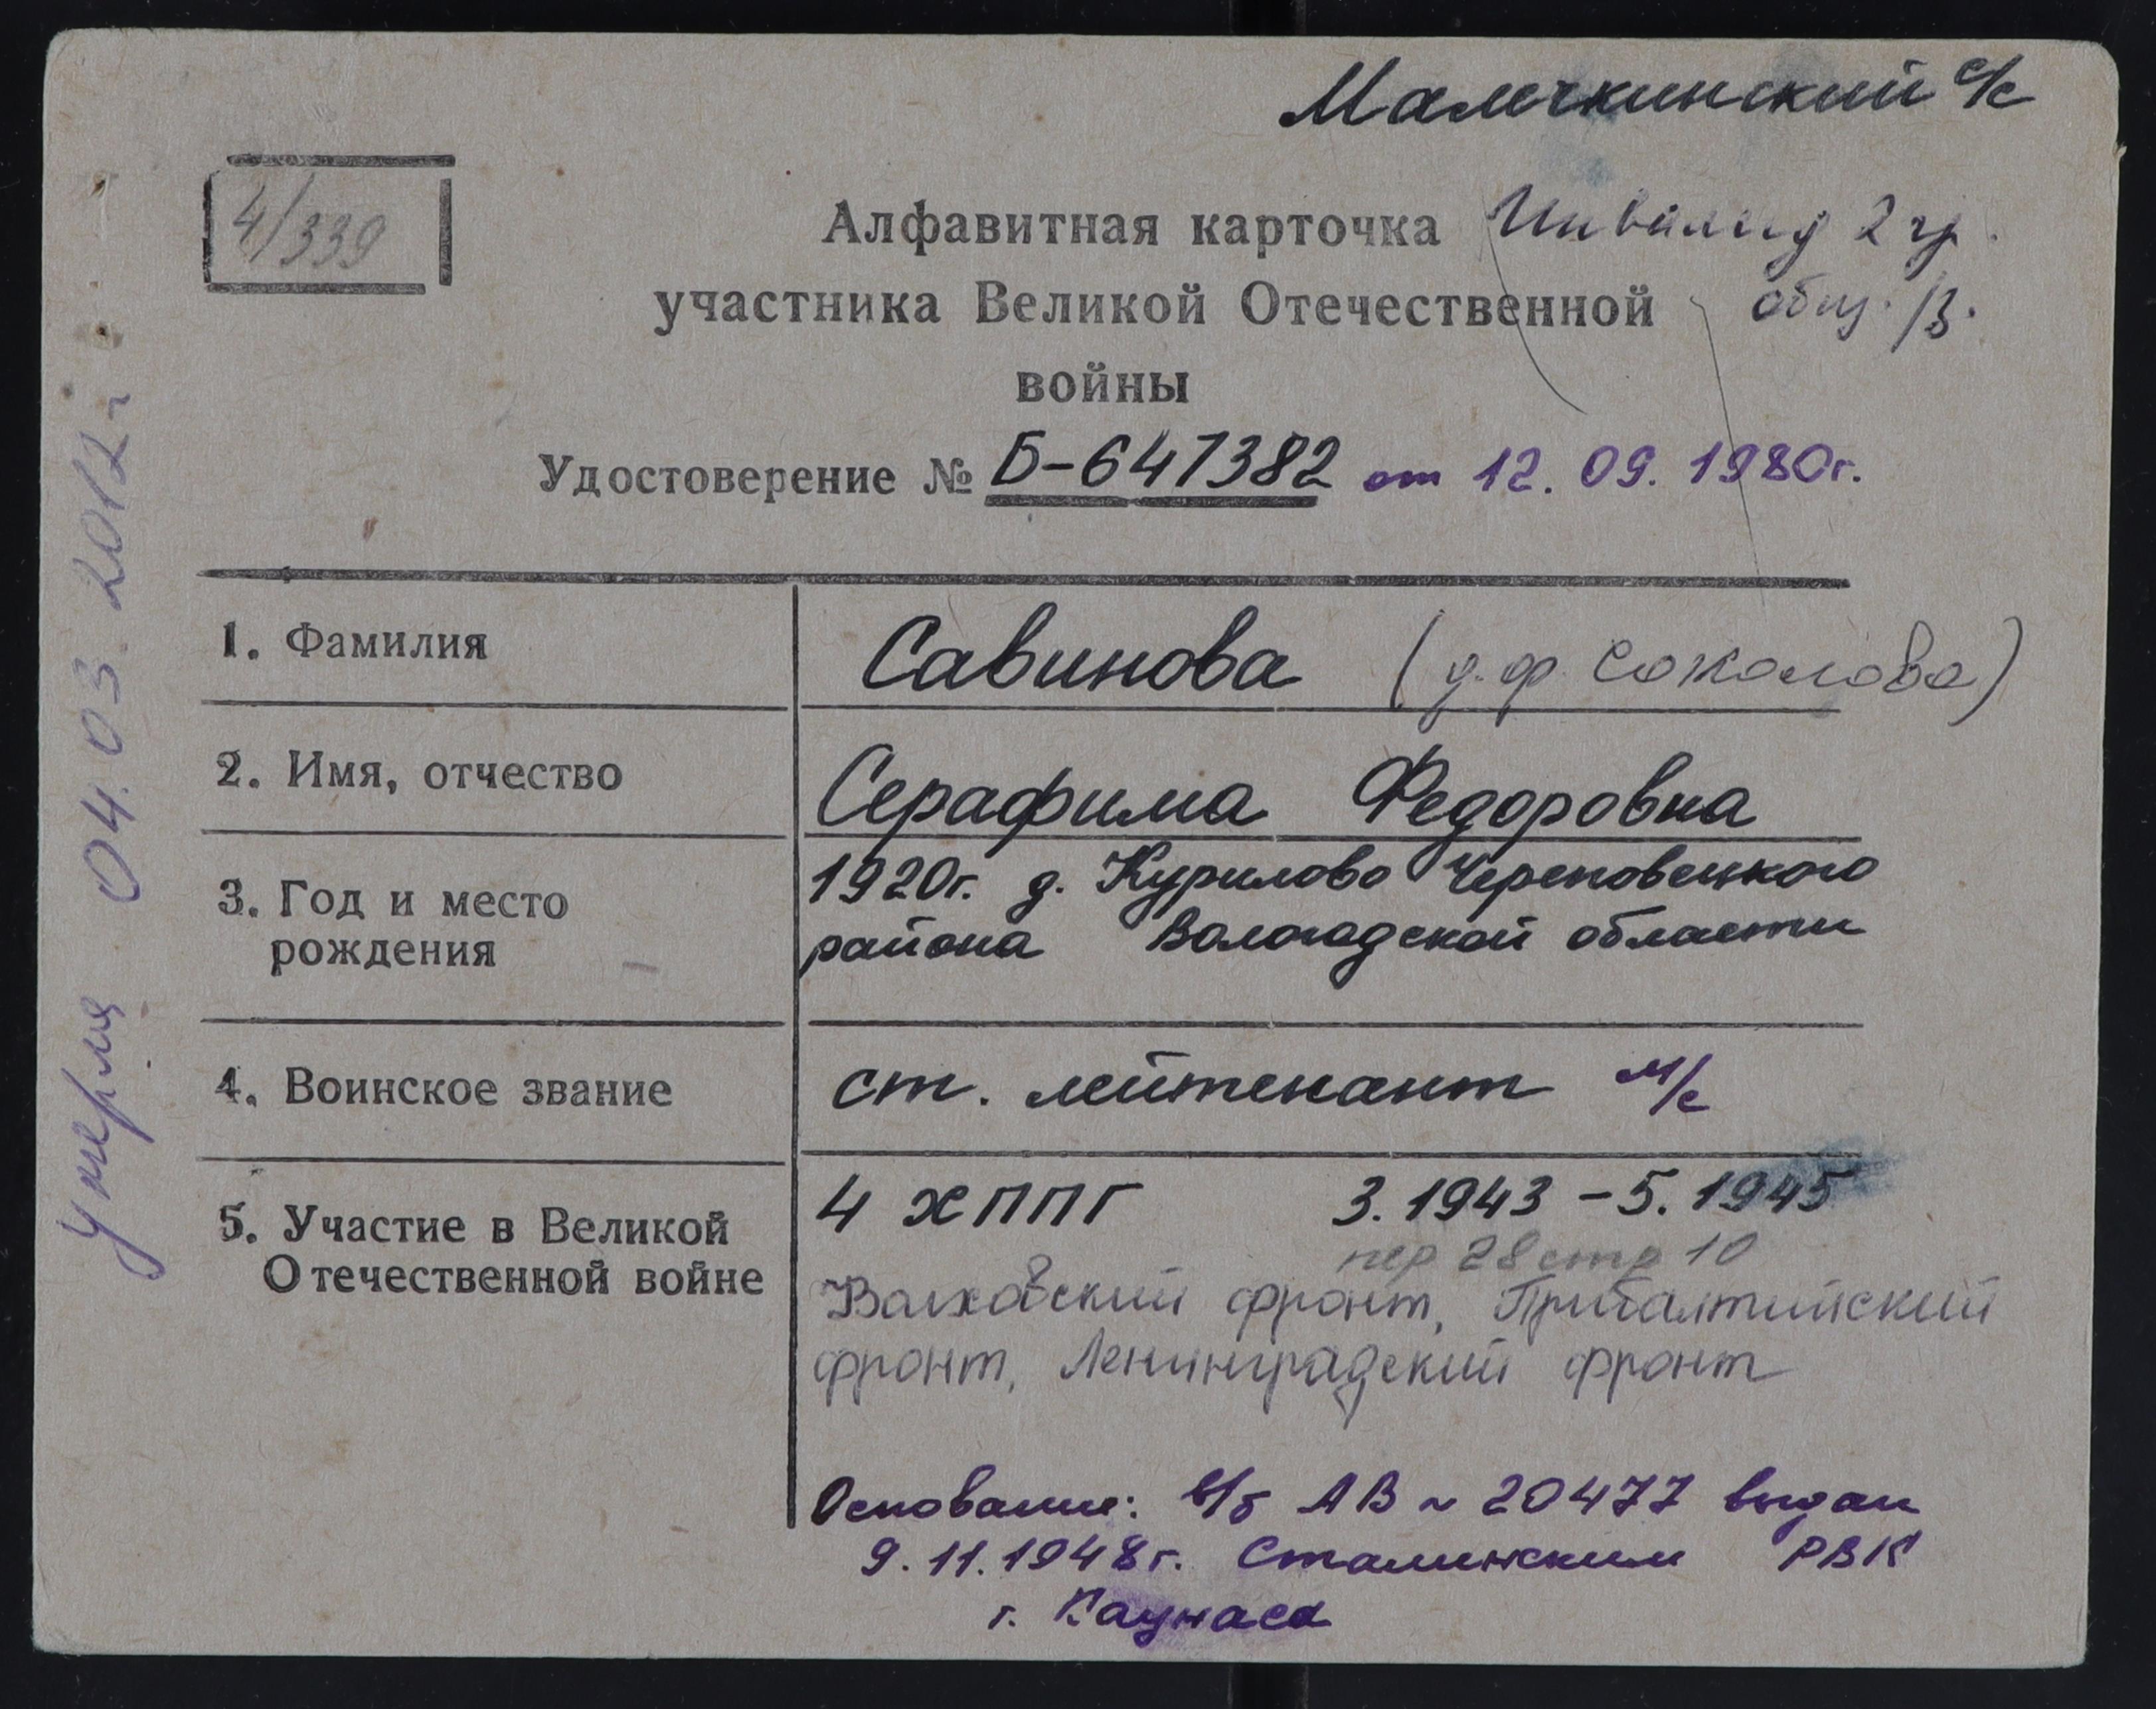 Малечкинский с/с
4/339
Алфавитная карточка Инвалид 2 гр.
участника Великой Отечественной общ. /З.
войны
Удостоверение № Б-647382 от 12.09.1980г.
1. Фамилия Савинова (д.ф. Соколова)
2. Имя, отчество Серафима Федоровна
3. Год и место 1920г. д. Курилово Череповецкого
рождения района Вологодской области
4. Воинское звание ст. лейтенант м/с
5. Участие в Великой 4 ХППГ 3.1943 - 5.1945
Отечественной войне пер 28 стр 10
Волховский фронт, Прибалтийский
фронт, Ленинградский фронт
Основание: в/б АВ № 20477 выдан
9.11.1948г. Сталинским РВК
г. Каунаса
умерла 04.03.2012г